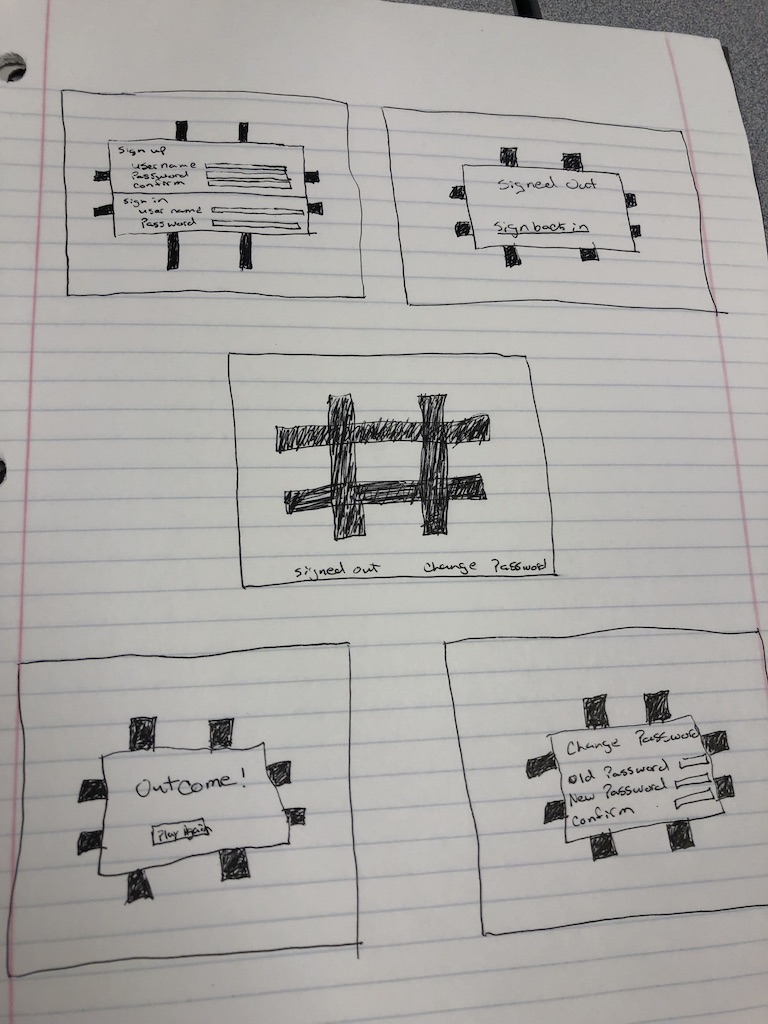 Sign up
username
Password
confirm
Sign in
user name
Password
Signed Out
Sign back in
signed out
Change Password
Outcome!
Play Again
Change Password
Old Password
New Password
Confirm